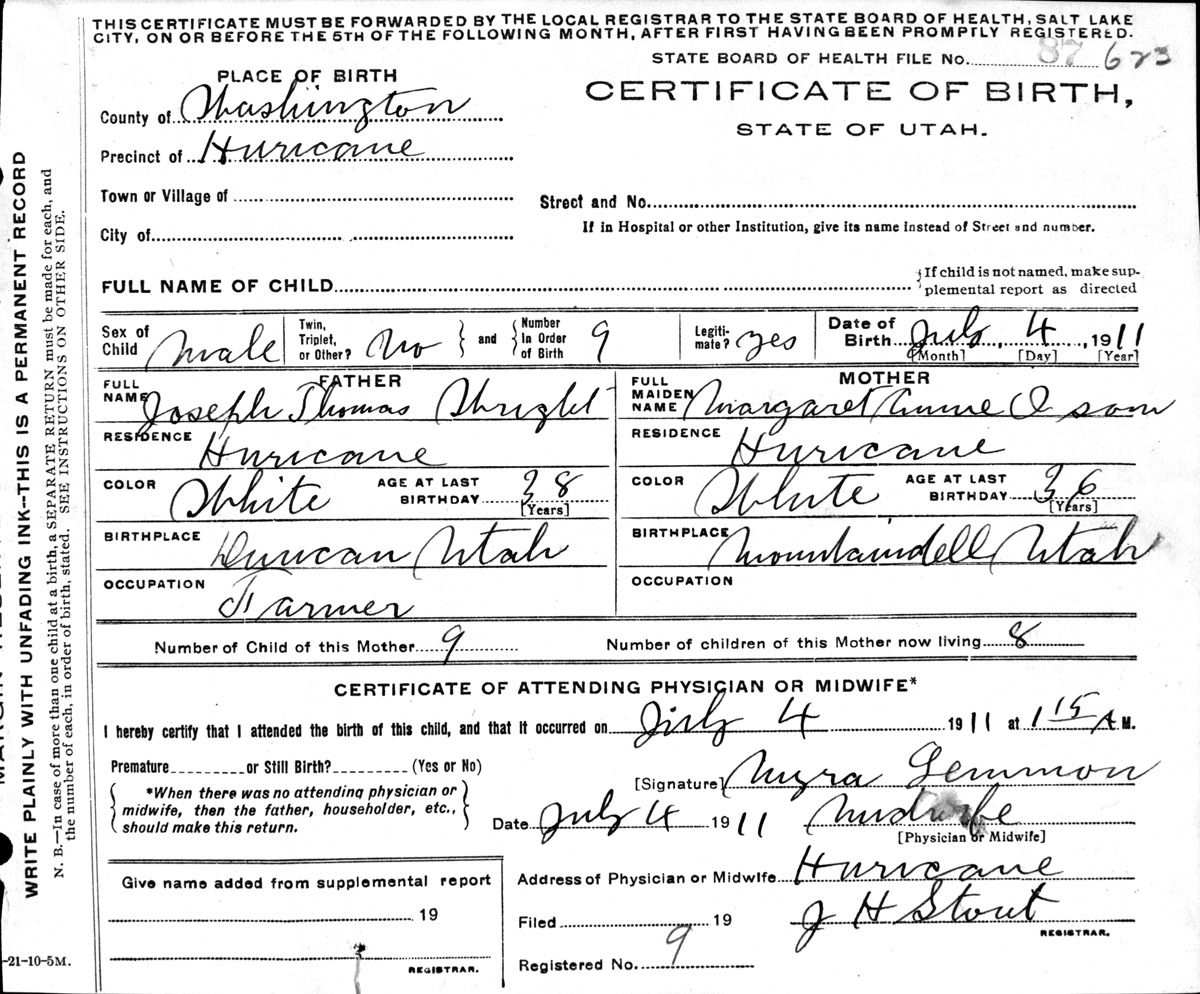 THIS CERTIFICATE MUST BE FORWARDED BY THE LOCAL REGISTRAR TO THE STATE BOARD OF HEALTH, SALT LAKE
CITY, ON OR BEFORE THE 5TH OF THE FOLLOWING MONTH, AFTER FIRST HAVING BEEN PROMPTLY REGISTERED.
STATE BOARD OF HEALTH FILE No. 87 623
PLACE OF BIRTH
CERTIFICATE OF BIRTH,
STATE OF UTAH.
County of Washington
Precinct of Huricane
Town or Village of
Street and No.
City of
If in Hospital or other Institution, give its name instead of Street and number.
FULL NAME OF CHILD
If child is not named, make sup-
plemental report as directed
Sex of Child Male
Twin, Triplet, or Other? No and Number In Order of Birth 9
Legiti-mate? yes
Date of Birth July 4, 1911
[Month] [Day] [Year]
FATHER
FULL NAME Joseph Thomas Wright
MOTHER
FULL MAIDEN NAME Margaret Anne Isom
RESIDENCE Huricane
RESIDENCE Huricane
COLOR White AGE AT LAST BIRTHDAY 38 [Years]
COLOR White AGE AT LAST BIRTHDAY 36 [Years]
BIRTHPLACE Duncan Utah
BIRTHPLACE Mountaindell Utah
OCCUPATION Farmer
OCCUPATION
Number of Child of this Mother 9 Number of children of this Mother now living 8
CERTIFICATE OF ATTENDING PHYSICIAN OR MIDWIFE*
I hereby certify that I attended the birth of this child, and that it occurred on July 4 1911 at 1 15 A M.
Premature or Still Birth? (Yes or No)
[Signature] Myra Lemmon
*When there was no attending physician or
midwife, then the father, householder, etc.,
should make this return.
Date July 4 1911 Midwife
[Physician or Midwife]
Give name added from supplemental report
19
REGISTRAR.
Address of Physician or Midwife Huricane
Filed 19 J H Stout
REGISTRAR.
Registered No. 9
-21-10-5M.
WRITE PLAINLY WITH UNFADING INK--THIS IS A PERMANENT RECORD
N. B.—In case of more than one child at a birth, a SEPARATE RETURN must be made for each, and
the number of each, in order of birth, stated. SEE INSTRUCTIONS ON OTHER SIDE.